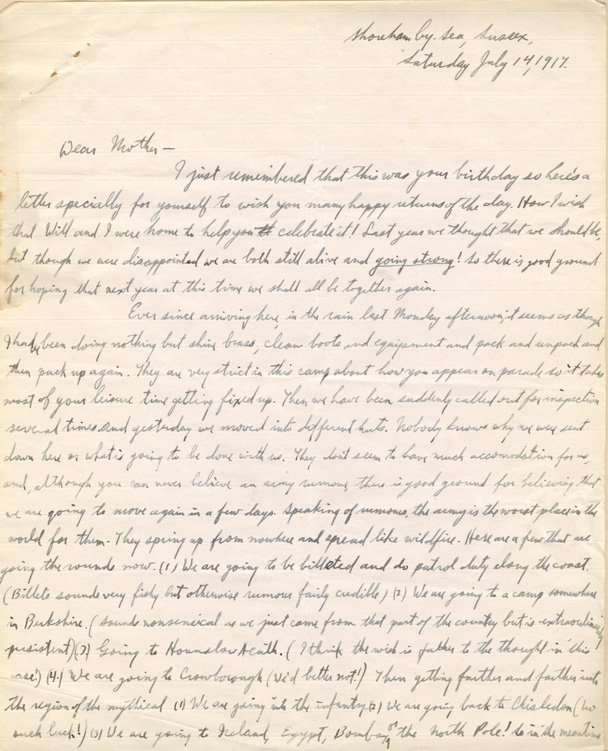 Shoreham-by-Sea, Sussex,
Saturday July 14, 1917.
Dear Mother —
I just remembered that this was your birthday so here's a
letter specially for yourself to wish you many happy returns of the day. How I wish
that Will and I were home to help you celebrate it! Last year we thought that we should be,
but though we were disappointed we are both still alive and going strong! so there is good ground
for hoping that next year at this time we shall all be together again.
Ever since arriving here, in the rain last Monday afternoon, it seems as though
I had been doing nothing but shine brass, clean boots and equipment and pack and unpack and
then pack up again. They are very strict in this camp about how you appear on parade so it takes
most of your leisure time getting fixed up. Then we have been suddenly called out for inspection
several times and yesterday we moved into different huts. Nobody knows why we were sent
down here or what is going to be done with us. They don't seem to have much accomodation for us,
and, although you can never believe an army rumour, there is good ground for believing that
we are going to move again in a few days. Speaking of rumours, the army is the worst place in the
world for them. They spring up from nowhere and spread like wildfire. Here are a few that are
going the rounds now. (1) We are going to be billeted and do patrol duty along the coast.
(Billets sounds very fishy but otherwise rumour fairly credible) (2) We are going to a camp somewhere
in Berkshire. (Sounds nonsensical as we just came from that part of the country but is extraordinarily
persistent) (3) Going to Hounslow Heath. (I think the wish is father to the thought in this
case) (4) We are going to Crowborough (We'd better not!) Then getting farther and farther into
the region of the mythical (1) We are going into the infantry. (2) We are going back to Chiseldon (no
such luck!) (3) We are going to Ireland, Egypt, Bombay or the North Pole! So in the meantime